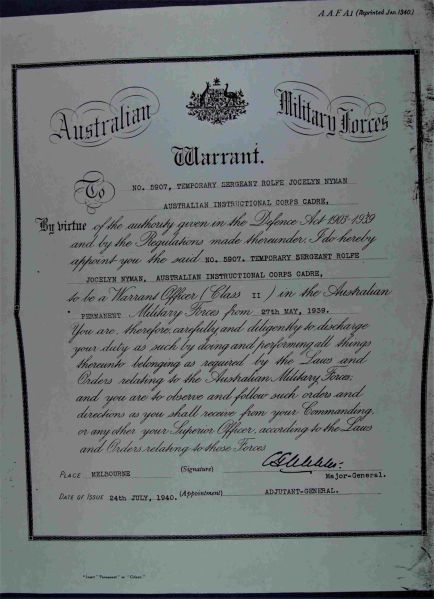 A.A.F. A1 (Reprinted Jan. 1940.)
Australian Military Forces
Warrant.
To NO. 5907, TEMPORARY SERGEANT ROLFE JOCELYN NYMAN
AUSTRALIAN INSTRUCTIONAL CORPS CADRE,
By virtue of the authority given in the Defence Act 1903-1939
and by the Regulations made thereunder, I do hereby
appoint you the said NO. 5907. TEMPORARY SERGEANT ROLFE
JOCELYN NYMAN, AUSTRALIAN INSTRUCTIONAL CORPS CADRE,
to be a Warrant Officer (Class II) in the Australian
PERMANENT Military Forces from 27th MAY, 1939.
You are, therefore, carefully and diligently to discharge
your duty as such by doing and performing all things
thereunto belonging as required by the Laws and
Orders relating to the Australian Military Forces;
and you are to observe and follow such orders and
directions as you shall receive from your Commanding,
or any other your Superior Officer, according to the Laws
and Orders relating to those Forces
PLACE MELBOURNE (Signature) Major-General.
DATE OF ISSUE 24th JULY, 1940. (Appointment) ADJUTANT-GENERAL.
*Insert "Permanent" or "Citizen."